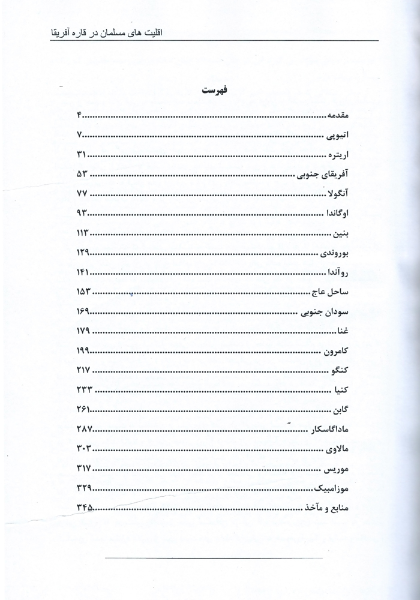 اقلیت های مسلمان در قاره آفریقا
فهرست
مقدمه........................................................................۴
اتیوپی .......................................................................۷
اریتره.......................................................................۳۱
آفریقای جنوبی ...............................................................۵۳
آنگولا ......................................................................۷۷
اوگاندا .....................................................................۹۳
بنین .......................................................................۱۱۳
بوروندی ....................................................................۱۲۹
روآندا......................................................................۱۴۱
ساحل عاج ...................................................................۱۵۳
سودان جنوبی ................................................................۱۶۹
غنا.........................................................................۱۷۹
کامرون .....................................................................۱۹۹
کنگو .......................................................................۲۱۷
کنیا .......................................................................۲۳۳
گابن .......................................................................۲۶۱
ماداگاسکار .................................................................۲۸۷
مالاوی ......................................................................۳۰۳
موریس ......................................................................۳۱۷
موزامبیک....................................................................۳۲۹
منابع و مآخذ ...............................................................۳۴۵